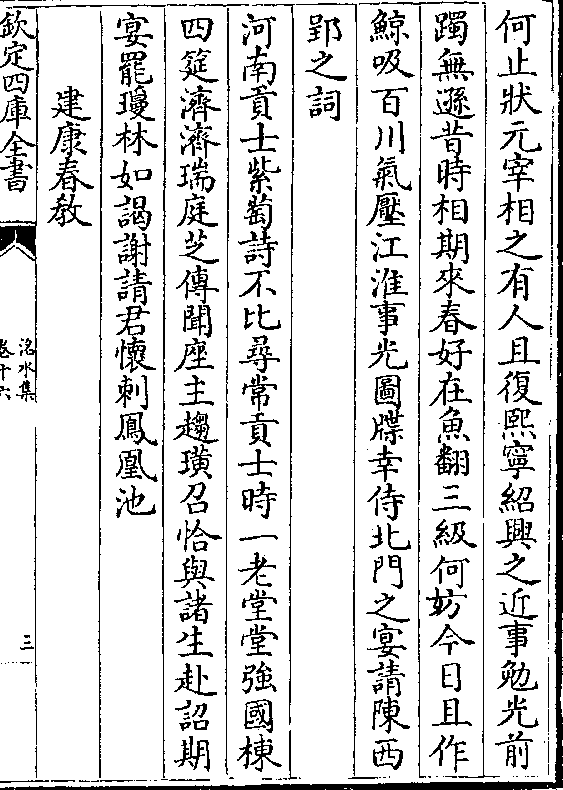 何止狀元宰相之有人且復熙寧紹興之近事勉光前
躅無遜昔時相期來春好在魚翻三級何妨今日且作
鯨吸百川氣壓江淮事光圖牒幸侍北門之宴請陳西
郢之詞
河南貢士紫萄詩不比尋常貢士時一老堂堂強國棟
四筵濟濟瑞庭芝傳聞座主趨璜召恰與諸生赴詔期
宴罷瓊林如謁謝請君懷刺鳳凰池
建康春教
欽定四庫全書
洺水集
卷十六
三